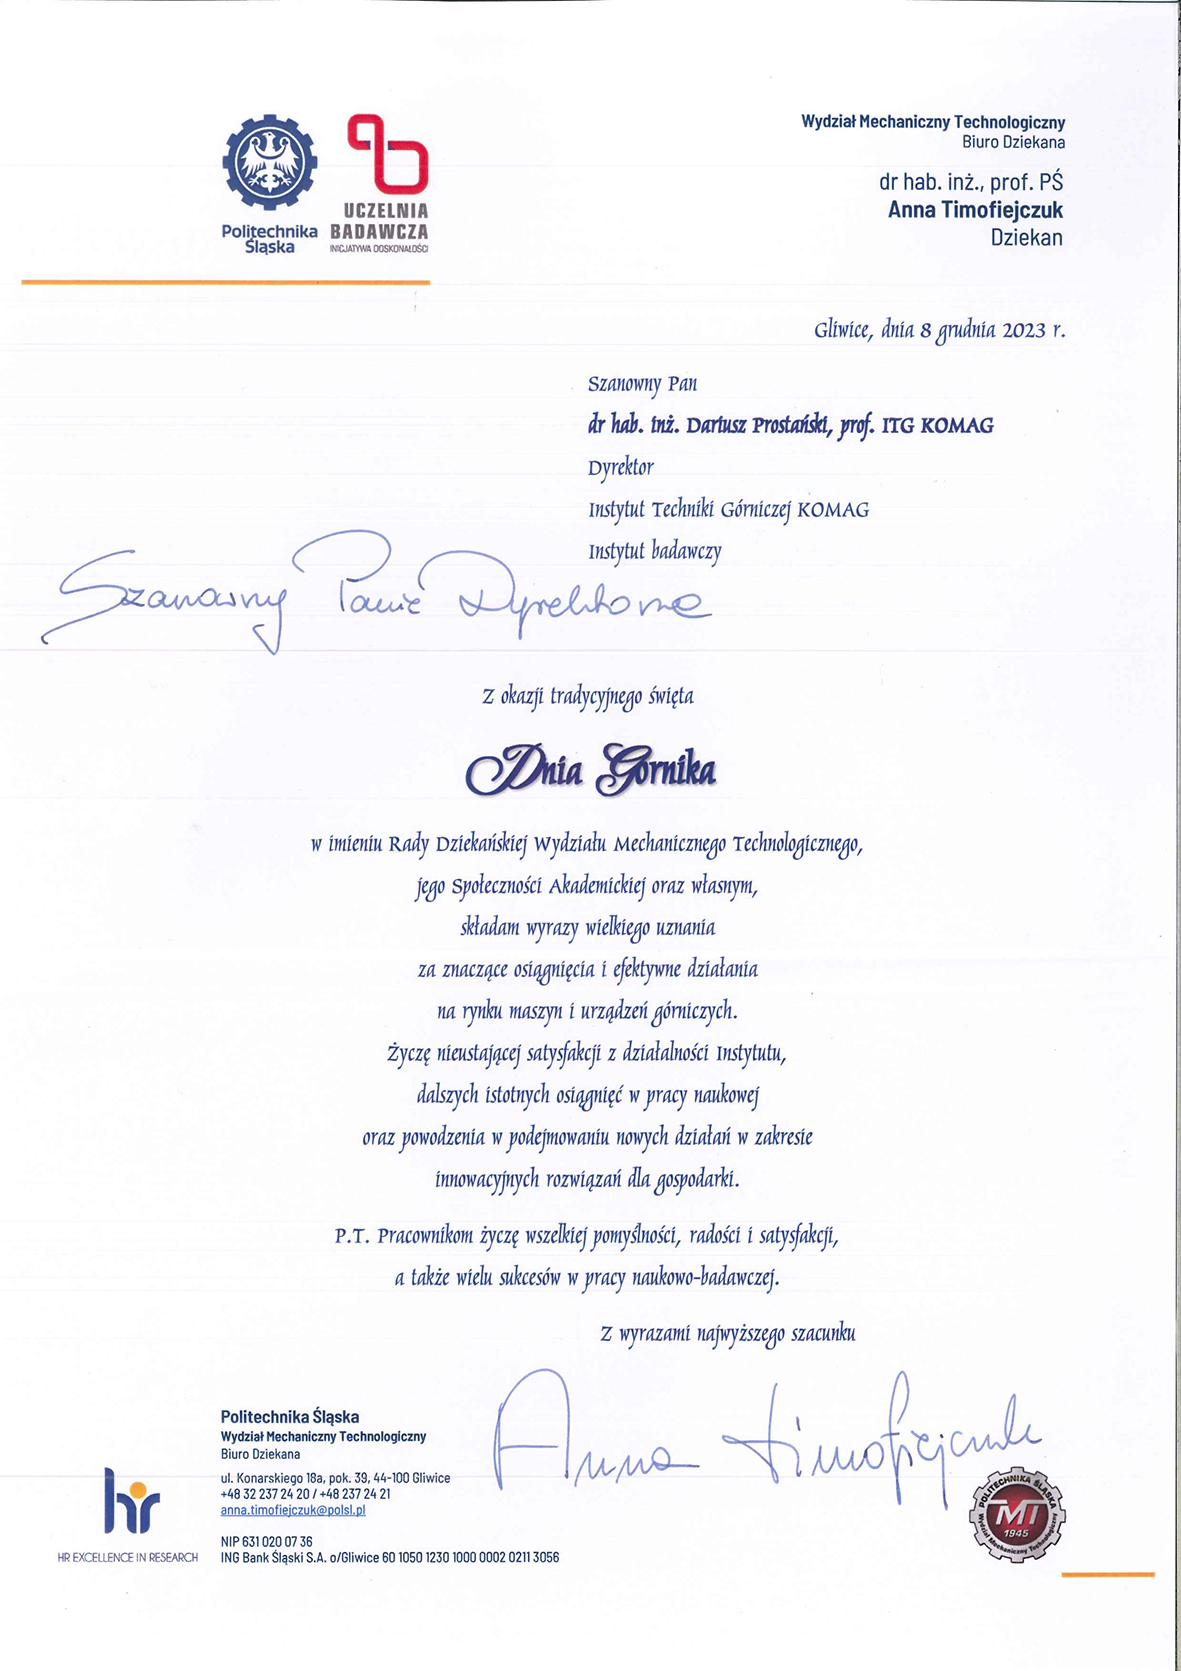 Politechnika
Śląska
UCZELNIA
BADAWCZA
INICJATYWA DOSKONAŁOŚCI
Wydział Mechaniczny Technologiczny
Biuro Dziekana
dr hab. inż., prof. PŚ
Anna Timofiejczuk
Dziekan
Gliwice, dnia 8 grudnia 2023 r.
Szanowny Pan
dr hab. inż. Dariusz Prostański, prof. ITG KOMAG
Dyrektor
Instytut Techniki Górniczej KOMAG
Instytut badawczy
Szanowny Panie Dyrektorze
Z okazji tradycyjnego święta
Dnia Górnika
w imieniu Rady Dziekańskiej Wydziału Mechanicznego Technologicznego,
jego Społeczności Akademickiej oraz własnym,
składam wyrazy wielkiego uznania
za znaczące osiągnięcia i efektywne działania
na rynku maszyn i urządzeń górniczych.
Życzę nieustającej satysfakcji z działalności Instytutu,
dalszych istotnych osiągnięć w pracy naukowej
oraz powodzenia w podejmowaniu nowych działań w zakresie
innowacyjnych rozwiązań dla gospodarki.
P.T. Pracownikom życzę wszelkiej pomyślności, radości i satysfakcji,
a także wielu sukcesów w pracy naukowo-badawczej.
Z wyrazami najwyższego szacunku
Anna Timofiejczuk
Politechnika Śląska
Wydział Mechaniczny Technologiczny
Biuro Dziekana
ul. Konarskiego 18a, pok. 39, 44-100 Gliwice
+48 32 237 24 20 / +48 237 24 21
anna.timofiejczuk@polsl.pl
NIP 631 020 07 36
ING Bank Śląski S.A. o/Gliwice 60 1050 1230 1000 0002 0211 3056
hr
HR EXCELLENCE IN RESEARCH
POLITECHNIKA ŚLĄSKA
MT
1945
Wydział Mechaniczny Technologiczny